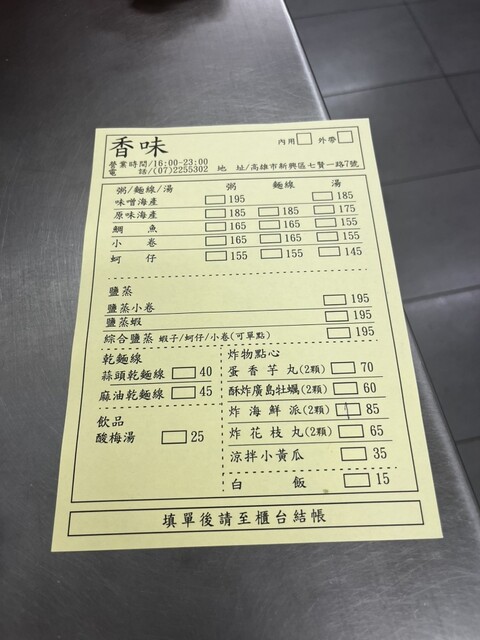 香味 內用□ 外帶□
營業時間/16:00-23:00
電 話/(07)2255302 地 址/高雄市新興區七賢一路7號
粥/麵線/湯 粥 麵線 湯
味噌海產 □195 □185
原味海產 □185 □185 □175
鯛魚 □165 □165 □155
小卷 □165 □165 □155
蚵仔 □155 □155 □145
鹽蒸
鹽蒸小卷 □195
鹽蒸蝦 □195
綜合鹽蒸 蝦子/蚵仔/小卷(可單點) □195
乾麵線
蒜頭乾麵線 □40
麻油乾麵線 □45
飲品
酸梅湯 □25
炸物點心
蛋香芋丸(2顆) □70
酥炸廣島牡蠣(2顆) □60
炸海鮮派(2顆) □85
炸花枝丸(2顆) □65
涼拌小黃瓜 □35
白飯 □15
填單後請至櫃台結帳